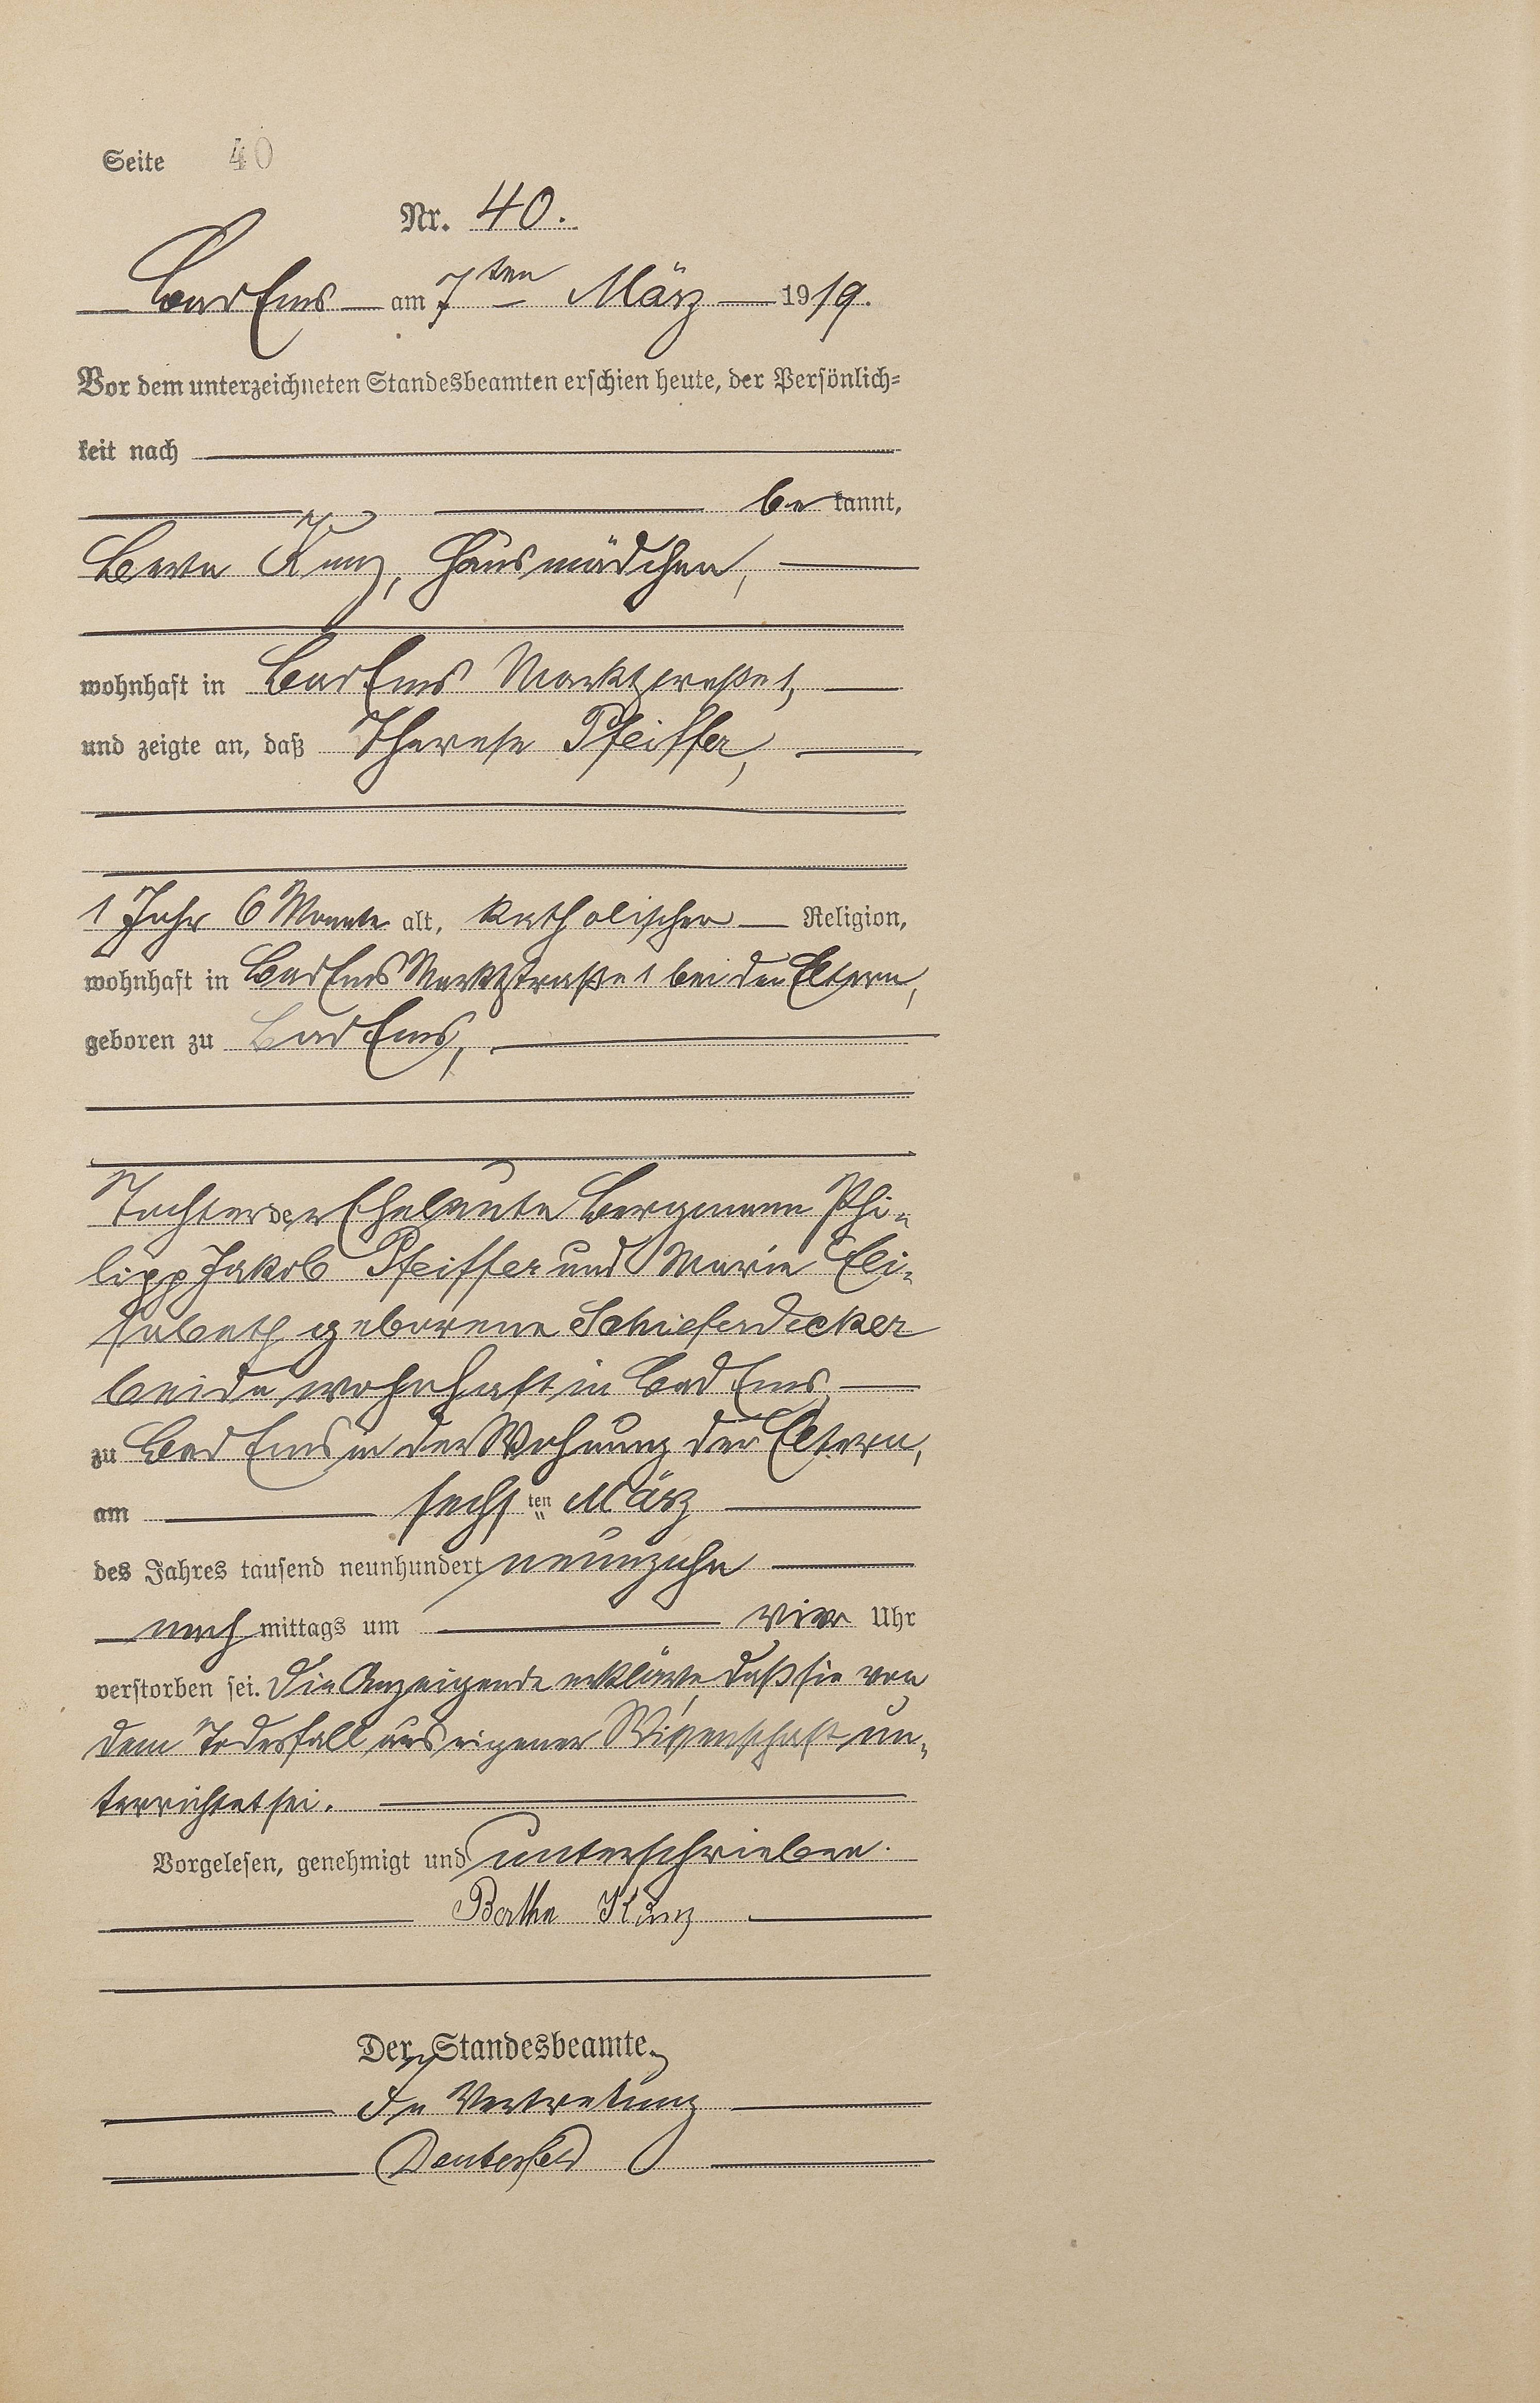 Seite 40
Nr. 40.
Bad Ems am 7ten März 1919.
Vor dem unterzeichneten Standesbeamten erschien heute, der Persönlich-
keit nach
be kannt,
Kunz, Hausmädchen,
wohnhaft in Bad Ems Marktstraße 1,
und zeigte an, daß Therese Pfeiffer,
1 Jahr 6 Monate alt, katholischer Religion,
wohnhaft in Bad Ems Marktstraße 1 bei den Eltern,
geboren zu Bad Ems,
Tochter der Eheleute Bergmann Phi-
lipp Jakob Pfeiffer und Marie Eli-
sabeth geborene Schieferdecker
beide wohnhaft in Bad Ems
zu Bad Ems in der Wohnung der Eltern,
am sechsten März
des Jahres tausend neunhundert neunzehn
nach mittags um vier Uhr
verstorben sei. Die Anzeigende erklärte, daß sie von
dem Todesfall aus eigener Wissenschaft un-
terrichtet sei.
Vorgelesen, genehmigt und unterschrieben.
Bertha Kunz
Der Standesbeamte.
In Vertretung